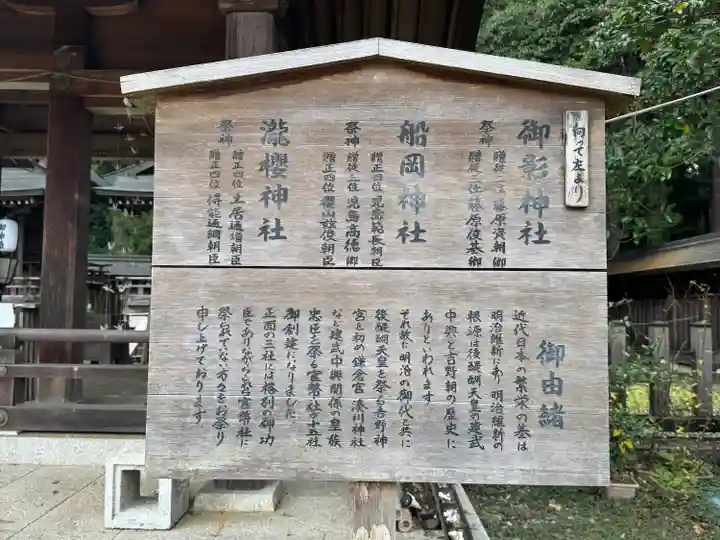 向って左より
御影神社
祭神
贈従二位藤原資朝卿
贈従三位藤原俊基卿
船岡神社
祭神
贈正四位児島範長朝臣
贈従三位児島高徳卿
贈正四位櫻山玆俊朝臣
瀧櫻神社
祭神
贈正四位土居通増朝臣
贈正四位得能通綱朝臣
御由緒
近代日本の繁栄の基は
明治維新にあり明治維新の
根源は後醍醐天皇の建武
中興と吉野朝の歴史に
ありといわれます
それ故に明治の御代と共に
後醍醐天皇を祭る吉野神
宮を初め鎌倉宮湊川神社
など建武中興関係の皇族
忠臣を祭る官幣社が十五社
御創建になりました
正面の三社には格別の御功
臣でありながら官幣社に
祭られてない方々をお祭り
申し上げております